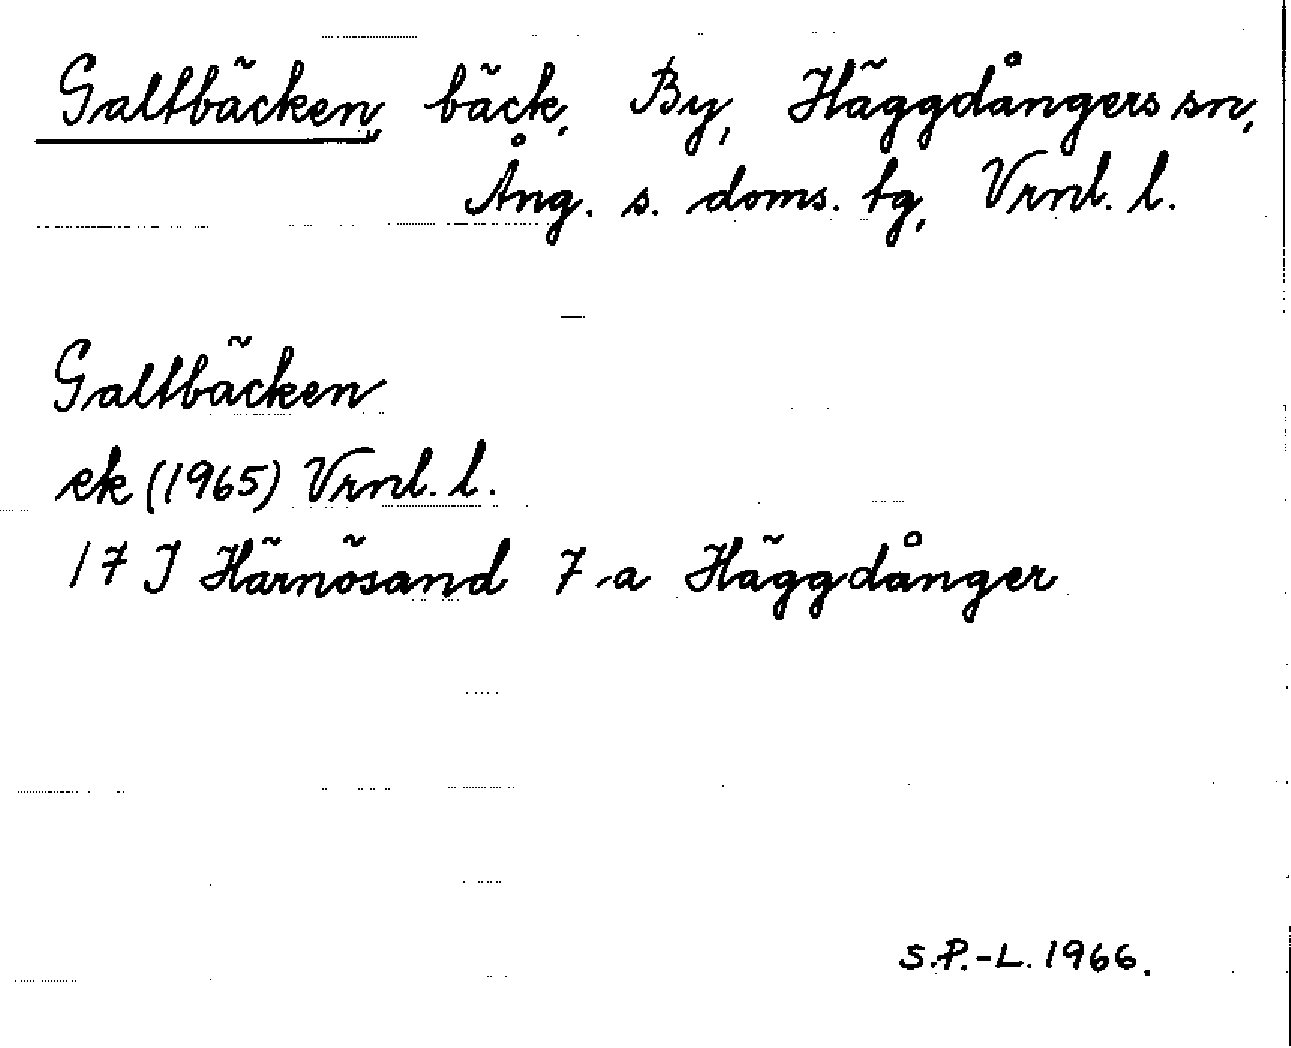 Galtbäcken, bäck, By, Häggdångers sn,
Ång. s. doms. tg, Vrnl. l.
Galtbäcken
ek (1965) Vrnl. l.
17 J Härnösand 7 a Häggdånger
S.P.-L. 1966.